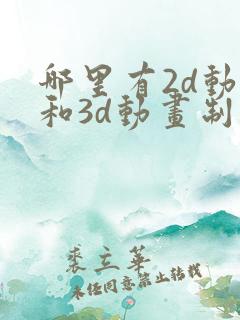 哪里有2d動
和3d動畫制
裘立華
未经同意禁止转载